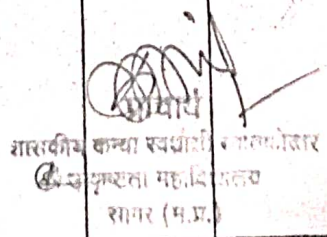 प्राचार्य
शासकीय कन्या स्वशासी स्नातकोत्तर
उत्कृष्टता महाविद्यालय
सागर (म.प्र.)